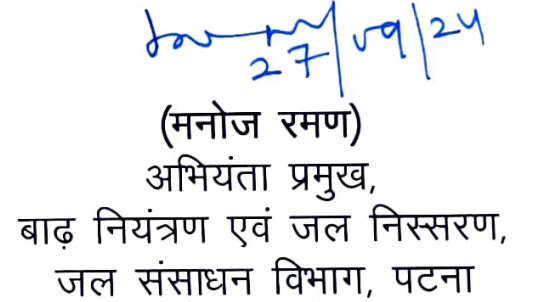 27/09/24
(मनोज रमण)
अभियंता प्रमुख,
बाढ़ नियंत्रण एवं जल निस्सरण,
जल संसाधन विभाग, पटना